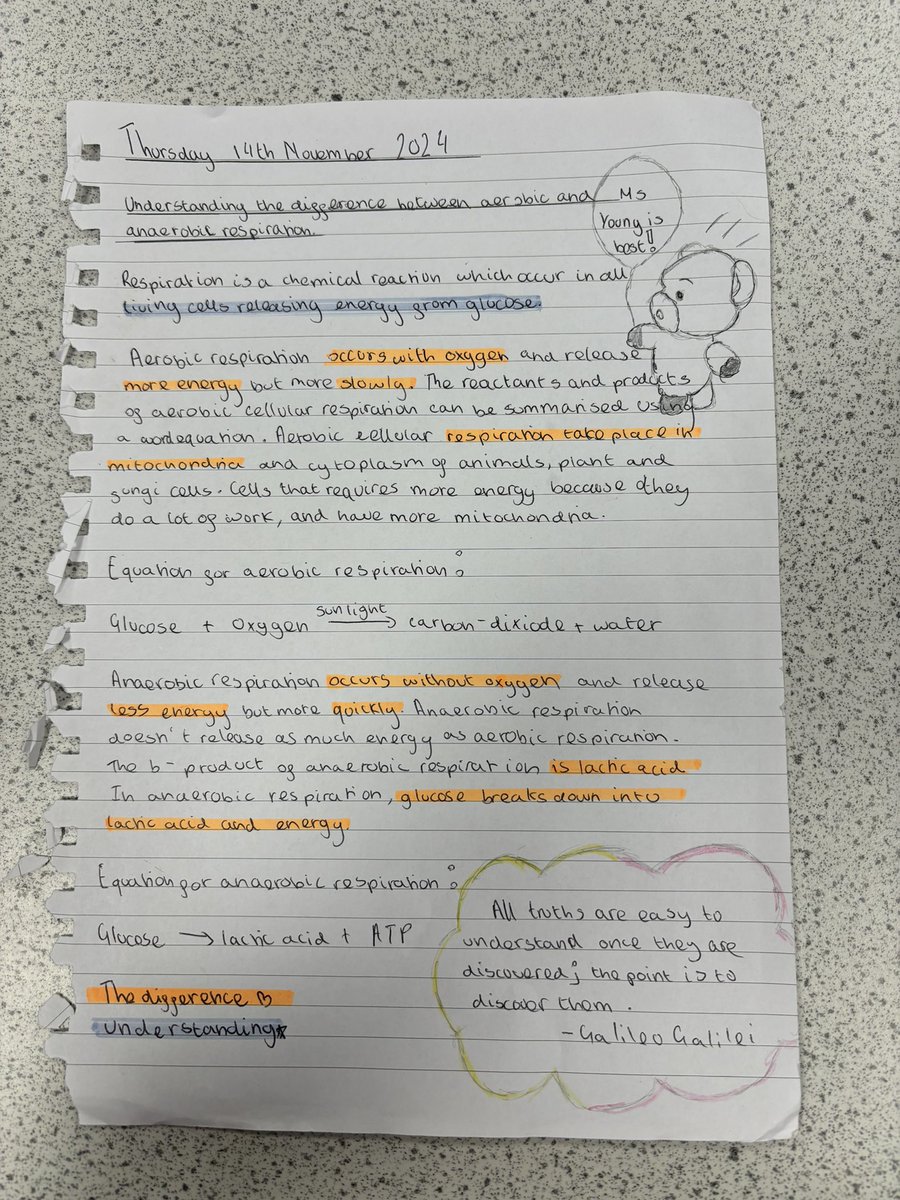 Thursday 14th November 2024
Understanding the difference between aerobic and
anaerobic respiration.
Ms
Young is
best!!
Respiration is a chemical reaction which occur in all
living cells releasing energy from glucose.
Aerobic respiration occurs with oxygen and release
more energy but more slowly. The reactants and products
of aerobic cellular respiration can be summarised using
a word equation. Aerobic cellular respiration take place in
mitochondria and cytoplasm of animals, plant and
fungi cells. Cells that requires more energy because they
do a lot of work, and have more mitochondria.
Equation for aerobic respiration:
sunlight
Glucose + Oxygen → carbon-dixiode + water
Anaerobic respiration occurs without oxygen and release
less energy but more quickly. Anaerobic respiration
doesn't release as much energy as aerobic respiration.
The b-product of anaerobic respiration is lactic acid
In anaerobic respiration, glucose breaks down into
lactic acid and energy.
Equation for anaerobic respiration:
Glucose → lactic acid + ATP
The difference ♡
Understanding☆
All truths are easy to
understand once they are
discovered; the point is to
discover them.
- Galileo Galilei